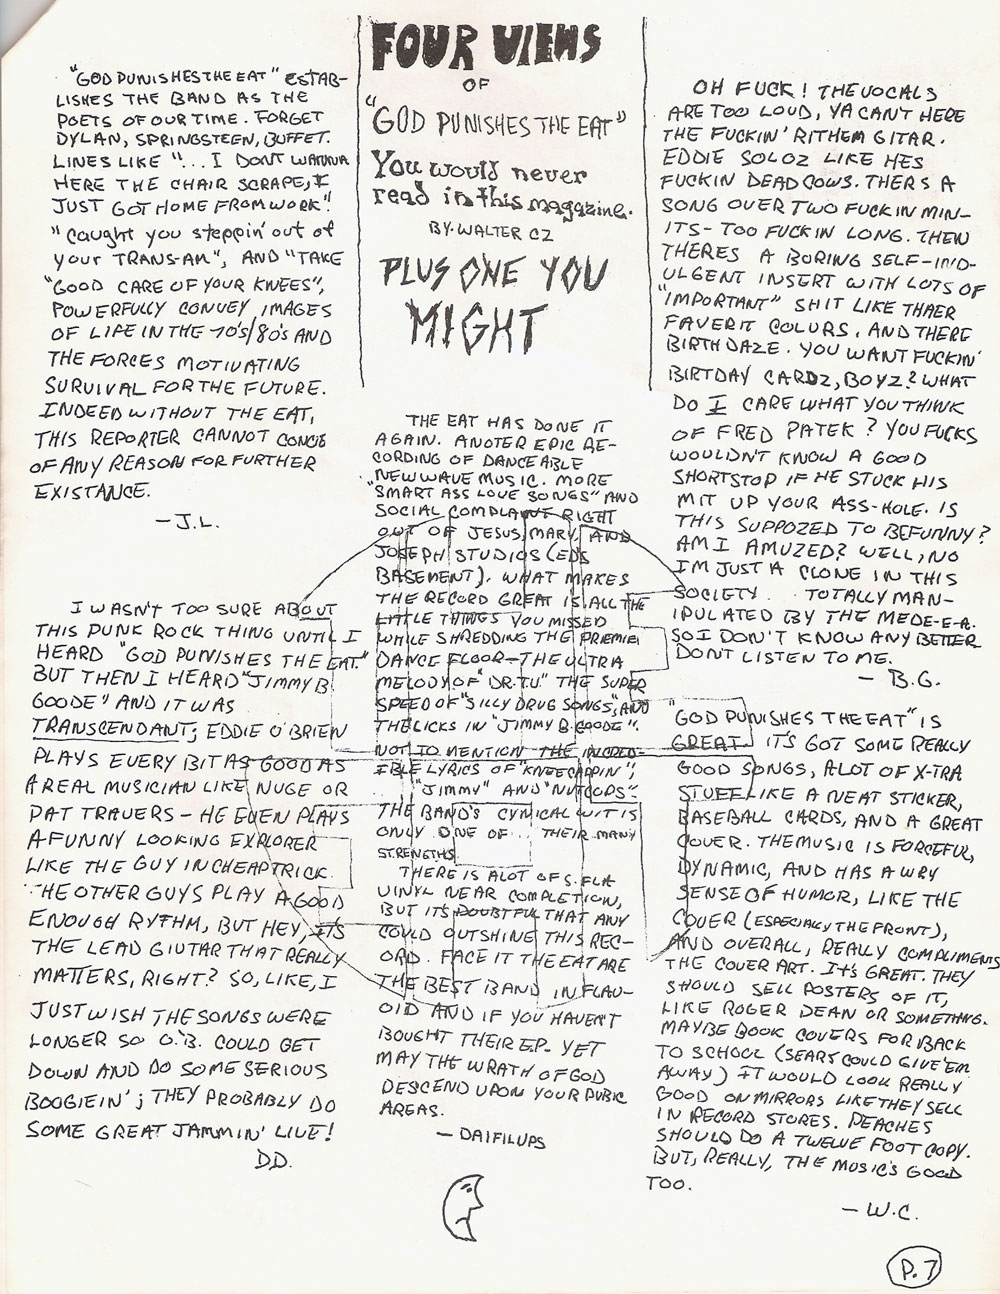 FOUR VIEWS
OF
"GOD PUNISHES THE EAT"
You would never
read in this magazine.
BY WALTER CZ
PLUS ONE YOU
MIGHT
"GOD PUNISHES THE EAT" ESTAB-
LISHES THE BAND AS THE
POETS OF OUR TIME. FORGET
DYLAN, SPRINGSTEEN, BUFFET.
LINES LIKE "... I DONT WANNA
HERE THE CHAIR SCRAPE, I
JUST GOT HOME FROM WORK".
"Caught you steppin' out of
your TRANS-AM", AND "TAKE
"GOOD CARE OF YOUR KNEES",
POWERFULLY CONVEY IMAGES
OF LIFE IN THE 70's/80's AND
THE FORCES MOTIVATING
SURVIVAL FOR THE FUTURE.
INDEED WITHOUT THE EAT,
THIS REPORTER CANNOT
OF ANY REASON FOR FURTHER
EXISTANCE.
—J.L.
I WASN'T TOO SURE ABOUT
THIS PUNK ROCK THING UNTIL I
HEARD "GOD PUNISHES THE EAT."
BUT THEN I HEARD "JIMMY B
GOODE" AND IT WAS
TRANSCENDANT; EDDIE O'BRIEN
PLAYS EVERY BIT AS GOOD AS
A REAL MUSICIAN LIKE NUGE OR
PAT TRAVERS - HE EVEN PLAYS
A FUNNY LOOKING EXPLORER
LIKE THE GUY IN CHEAP TRICK.
THE OTHER GUYS PLAY A GOOD
ENOUGH RYTHM, BUT HEY, IT'S
THE LEAD GIUTAR THAT REALLY
MATTERS, RIGHT? SO, LIKE, I
JUST WISH THE SONGS WERE
LONGER SO O.'B. COULD GET
DOWN AND DO SOME SERIOUS
BOOGIEIN'; THEY PROBABLY DO
SOME GREAT JAMMIN' LIVE!
D.D.
THE EAT HAS DONE IT
AGAIN. ANOTER EPIC RE-
CORDING OF DANCEABLE
NEW WAVE MUSIC. MORE
"SMART ASS LOVE SONGS" AND
SOCIAL COMPLAINT RIGHT
OUT OF JESUS, MARY, AND
JOSEPH STUDIOS (EDS
BASEMENT). WHAT MAKES
THE RECORD GREAT IS ALL THE
LITTLE THINGS YOU MISSED
WHILE SHREDDING THE PREMIER
DANCE FLOOR—THE ULTRA
MELODY OF "DR. TU." THE SUPER
SPEED OF "SILLY DRUG SONGS", AND
THE LICKS IN "JIMMY B. GOODE".
NOT TO MENTION THE INCRED-
IBLE LYRICS OF "KNEECAPPIN'",
"JIMMY" AND "NUTCOPS".
THE BAND'S CYNICAL WIT IS
ONLY ONE OF... THEIR MANY
STRENGTHS.
THERE IS ALOT OF S. FLA
VINYL NEAR COMPLETION,
BUT IT'S DOUBTFUL THAT ANY
COULD OUTSHINE THIS REC-
ORD. FACE IT THE EAT ARE
THE BEST BAND IN FLAU-
OID AND IF YOU HAVEN'T
BOUGHT THEIR E.P. YET
MAY THE WRATH OF GOD
DESCEND UPON YOUR PUBIC
AREAS.
— DAIFILUPS
OH FUCK! THE VOCALS
ARE TOO LOUD, YA CAN'T HERE
THE FUCKIN' RITHEM GITAR.
EDDIE SOLOZ LIKE HES
FUCKIN DEAD COWS. THERS A
SONG OVER TWO FUCKIN MIN-
ITS- TOO FUCKIN LONG. THEN
THERES A BORING SELF-IND-
ULGENT INSERT WITH LOTS OF
"IMPORTANT" SHIT LIKE THAER
FAVERIT COLURS, AND THERE
BIRTH DAZE. YOU WANT FUCKIN'
BIRTDAY CARDZ, BOYZ? WHAT
DO I CARE WHAT YOU THINK
OF FRED PATEK? YOU FUCKS
WOULDN'T KNOW A GOOD
SHORTSTOP IF HE STUCK HIS
MIT UP YOUR ASS-HOLE. IS
THIS SUPPOZED TO BE FUNNY?
AM I AMUZED? WELL, NO
I'M JUST A CLONE IN THIS
SOCIETY... TOTALLY MAN-
IPULATED BY THE MEDE-E-A.
SO I DON'T KNOW ANY BETTER
DON'T LISTEN TO ME.
— B.G.
"GOD PUNISHES THE EAT" IS
GREAT. IT'S GOT SOME REALLY
GOOD SONGS, ALOT OF X-TRA
STUFF LIKE A NEAT STICKER,
BASEBALL CARDS, AND A GREAT
COVER. THE MUSIC IS FORCEFUL,
DYNAMIC, AND HAS A WRY
SENSE OF HUMOR, LIKE THE
COVER (ESPECIALLY THE FRONT),
AND OVERALL, REALLY COMPLIMENTS
THE COVER ART. IT'S GREAT. THEY
SHOULD SELL POSTERS OF IT,
LIKE ROGER DEAN OR SOMETHING.
MAYBE BOOK COVERS FOR BACK
TO SCHOOL (SEARS COULD GIVE 'EM
AWAY) IT WOULD LOOK REALLY
GOOD ON MIRRORS LIKE THEY SELL
IN RECORD STORES. PEACHES
SHOULD DO A TWELVE FOOT COPY.
BUT, REALLY, THE MUSIC'S GOOD
TOO.
— W.C.
P. 7